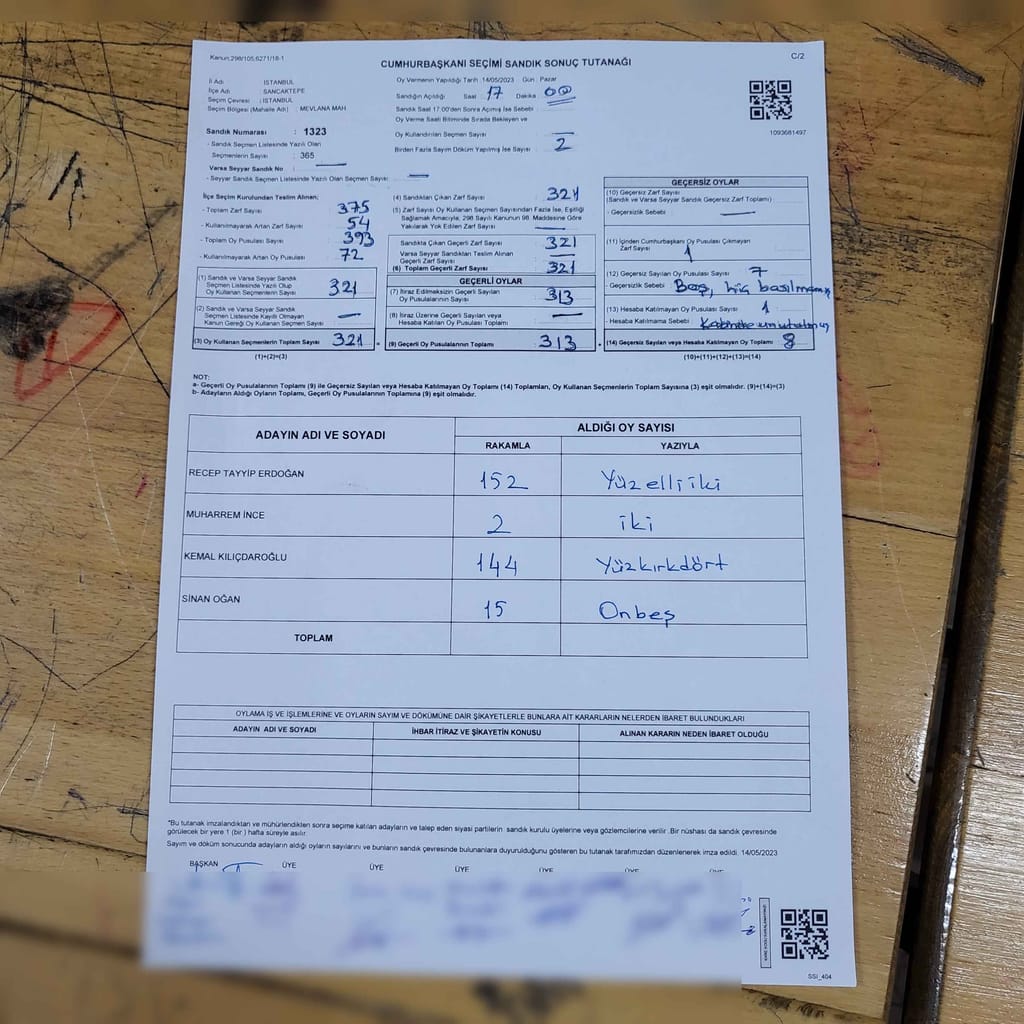 Kanun:298/105,6271/18-1
CUMHURBAŞKANI SEÇİMİ SANDIK SONUÇ TUTANAĞI
C/2
İl Adı : İSTANBUL
İlçe Adı : SANCAKTEPE
Seçim Çevresi : İSTANBUL
Seçim Bölgesi (Mahalle Adı) : MEVLANA MAH
Oy Vermenin Yapıldığı Tarih :14/05/2023 Gün : Pazar
Sandığın Açıldığı Saat : 17 Dakika : 00
Sandık Saat 17.00'den Sonra Açılmış İse Sebebi :
Oy Verme Saati Bitiminde Sırada Bekleyen ve
Oy Kullandırılan Seçmen Sayısı : —
Birden Fazla Sayım Döküm Yapılmış İse Sayısı : 2
1093681497
Sandık Numarası : 1323
- Sandık Seçmen Listesinde Yazılı Olan
Seçmenlerin Sayısı : 365
Varsa Seyyar Sandık No : —
- Seyyar Sandık Seçmen Listesinde Yazılı Olan Seçmen Sayısı : —
İlçe Seçim Kurulundan Teslim Alınan;
- Toplam Zarf Sayısı : 375
- Kullanılmayarak Artan Zarf Sayısı : 54
- Toplam Oy Pusulası Sayısı : 393
- Kullanılmayarak Artan Oy Pusulası : 72
(1) Sandık ve Varsa Seyyar Sandık
Seçmen Listesinde Yazılı Olup
Oy Kullanan Seçmenlerin Sayısı : 321
(2) Varsa Sandık ve Seyyar Sandık
Seçmen Listesinde Kayıtlı Olmayan
Kanun Gereği Oy Kullanan Seçmen Sayısı : —
(3) Oy Kullanan Seçmenlerin Toplam Sayısı : 321
(1)+(2)=(3)
(4) Sandıktan Çıkan Zarf Sayısı : 321
(5) Zarf Sayısı Oy Kullanan Seçmen Sayısından Fazla İse, Eşitliği
Sağlamak Amacıyla; 298 Sayılı Kanunun 98. Maddesine Göre
Yakılarak Yok Edilen Zarf Sayısı : —
Sandıkta Çıkan Geçerli Zarf Sayısı : 321
Varsa Seyyar Sandıktan Teslim Alınan
Geçerli Zarf Sayısı : —
(6) Toplam Geçerli Zarf Sayısı : 321
GEÇERLİ OYLAR
(7) İtiraz Edilmeksizin Geçerli Sayılan
Oy Pusulalarının Sayısı : 313
(8) İtiraz Üzerine Geçerli Sayılan veya
Hesaba Katılan Oy Pusulası Toplamı : —
(9) Geçerli Oy Pusulalarının Toplamı : 313
GEÇERSİZ OYLAR
(10) Geçersiz Zarf Sayısı :
(Sandık ve Varsa Seyyar Sandık Geçersiz Zarf Toplamı)
- Geçersizlik Sebebi : —
(11) İçinden Cumhurbaşkanı Oy Pusulası Çıkmayan
Zarf Sayısı : 1
(12) Geçersiz Sayılan Oy Pusulası Sayısı : 7
- Geçersizlik Sebebi : Boş, hiç basılmamış
(13) Hesaba Katılmayan Oy Pusulası Sayısı : 1
- Hesaba Katılmama Sebebi :
(14) Geçersiz Sayılan veya Hesaba Katılmayan Oy Toplamı : 8
(10)+(11)+(12)+(13)=(14)
NOT:
a- Geçerli Oy Pusulalarının Toplamı (9) ile Geçersiz Sayılan veya Hesaba Katılmayan Oy Toplamı (14) Toplamları, Oy Kullanan Seçmenlerin Toplam Sayısına (3) eşit olmalıdır. (9)+(14)=(3)
b- Adayların Aldığı Oyların Toplamı, Geçerli Oy Pusulalarının Toplamına (9) eşit olmalıdır.
ADAYIN ADI VE SOYADI ALDIĞI OY SAYISI
RAKAMLA YAZIYLA
RECEP TAYYİP ERDOĞAN 152 Yüzelliiki
MUHARREM İNCE 2 iki
KEMAL KILIÇDAROĞLU 144 Yüzkırkdört
SİNAN OĞAN 15 Onbeş
TOPLAM
OYLAMA İŞ VE İŞLEMLERİNE VE OYLARIN SAYIM VE DÖKÜMÜNE DAİR ŞİKAYETLERLE BUNLARA AİT KARARLARIN NELERDEN İBARET BULUNDUKLARI
ADAYIN ADI VE SOYADI İHBAR İTİRAZ VE ŞİKAYETİN KONUSU ALINAN KARARIN NEDEN İBARET OLDUĞU
"Bu tutanak imzalandıktan ve mühürlendikten sonra seçime katılan adayların ve talep eden siyasi partilerin sandık kurulu üyelerine veya gözlemcilerine verilir .Bir nüshası da sandık çevresinde
görülecek bir yere 1 (bir ) hafta süreyle asılır.
Sayım ve döküm sonucunda adayların aldığı oyların sayılarını ve bunların sandık çevresinde bulunanlara duyurulduğunu gösteren bu tutanak tarafımızdan düzenlenerek imza edildi. 14/05/2023
BAŞKAN ÜYE ÜYE ÜYE ÜYE ÜYE ÜYE
SSI_404